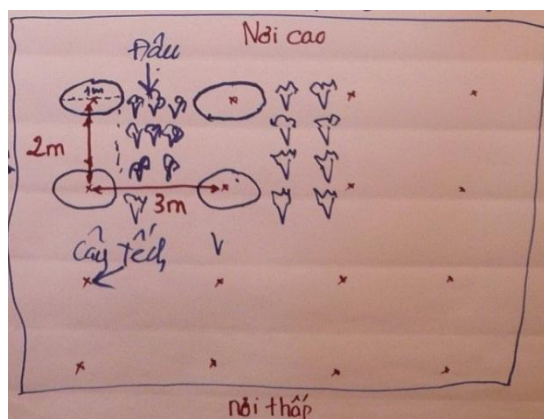 Nơi cao
Đậu
1m
2m
3m
Cây Tếch
nơi thấp